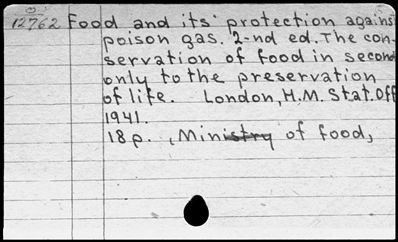 12762 Food and its protection agains
poison gas. 2-nd ed. The con-
servation of food in second
only to the preservation
of life. London, H.M. Stat. Off
1941.
18 p. , Ministry of food,